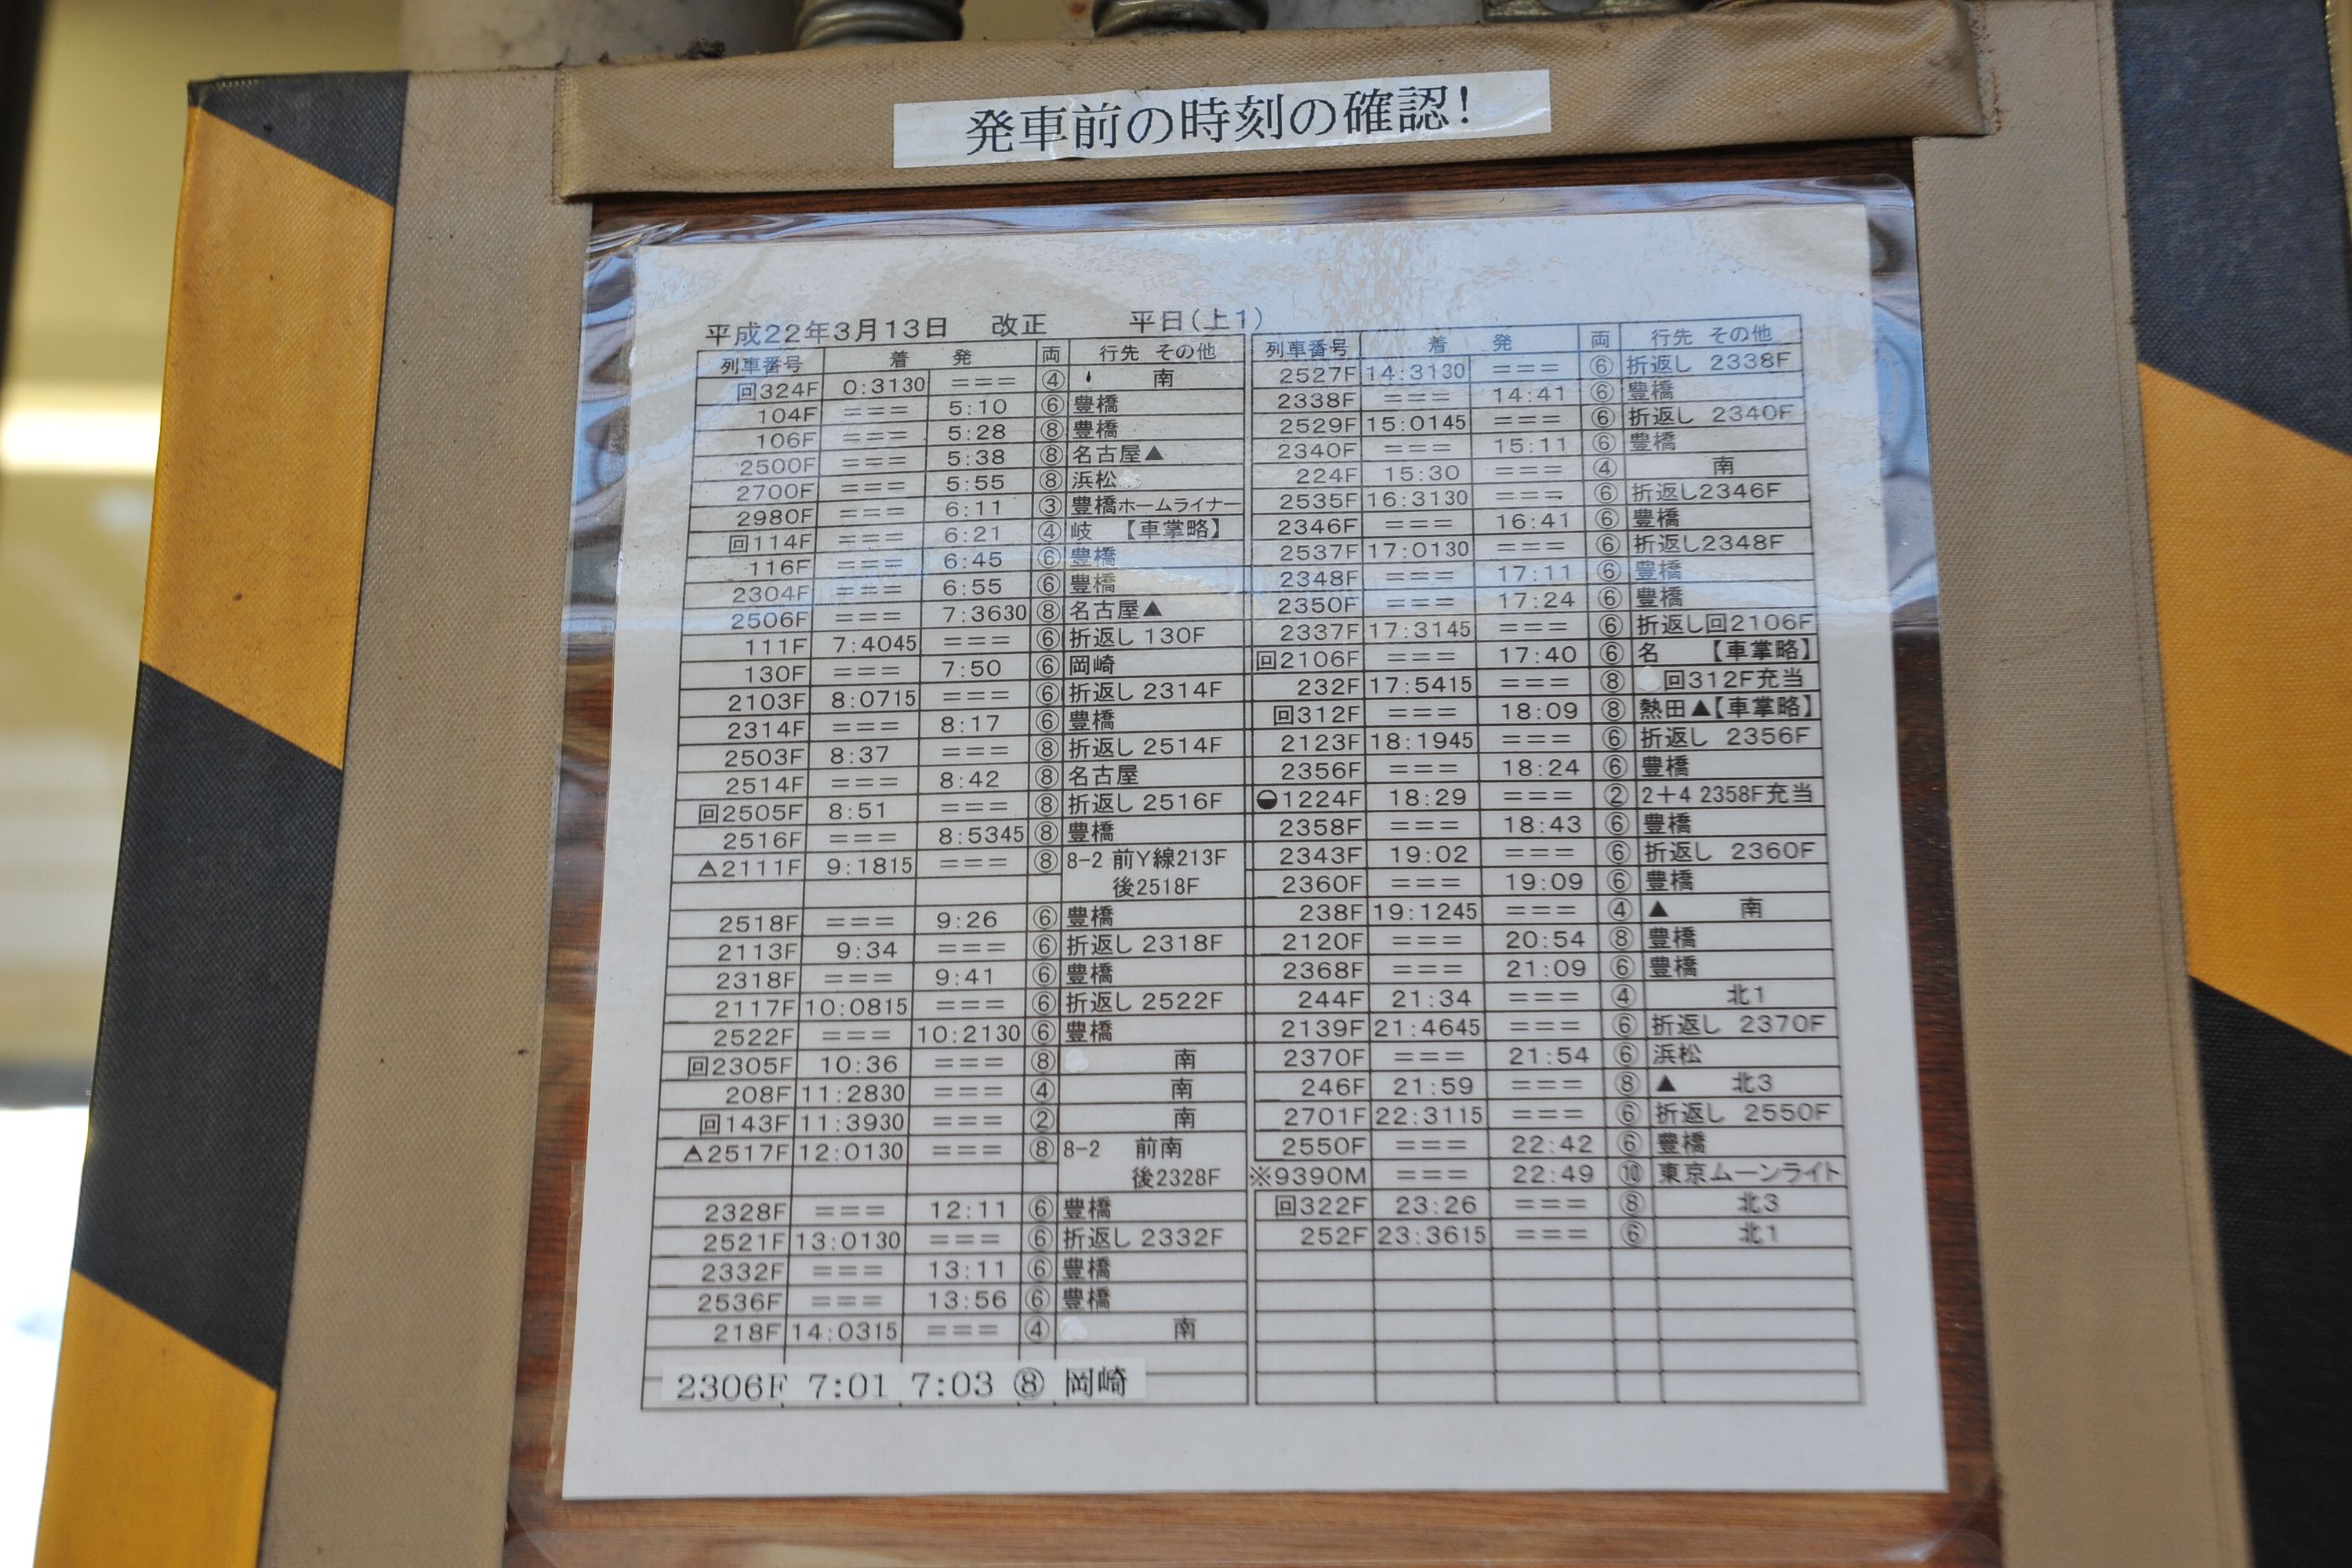 発車前の時刻の確認!
平成22年3月13日 改正 平日(上1)
列車番号 着 発 両 行先 その他
回324F 0:3130 === ④ 南
104F === 5:10 ⑥ 豊橋
106F === 5:28 ⑧ 豊橋
2500F === 5:38 ⑧ 名古屋▲
2700F === 5:55 ⑧ 浜松
2980F === 6:11 ③ 豊橋ホームライナー
回114F === 6:21 ④ 岐 【車掌略】
116F === 6:45 ⑥ 豊橋
2304F === 6:55 ⑥ 豊橋
2506F === 7:3630 ⑧ 名古屋▲
111F 7:4045 === ⑥ 折返し 130F
130F === 7:50 ⑥ 岡崎
2103F 8:0715 === ⑥ 折返し 2314F
2314F === 8:17 ⑥ 豊橋
2503F 8:37 === ⑧ 折返し 2514F
2514F === 8:42 ⑧ 名古屋
回2505F 8:51 === ⑧ 折返し 2516F
2516F === 8:5345 ⑧ 豊橋
2111F 9:1815 === ⑧ 8-2 前Y線213F
後2518F
2518F === 9:26 ⑥ 豊橋
2113F 9:34 === ⑥ 折返し 2318F
2318F === 9:41 ⑥ 豊橋
2117F 10:0815 === ⑥ 折返し 2522F
2522F === 10:2130 ⑥ 豊橋
回2305F 10:36 === ⑧ 南
208F 11:2830 === ④ 南
回143F 11:3930 === ② 南
2517F 12:0130 === ⑧ 8-2 前南
後2328F
2328F === 12:11 ⑥ 豊橋
2521F 13:0130 === ⑥ 折返し 2332F
2332F === 13:11 ⑥ 豊橋
2536F === 13:56 ⑥ 豊橋
218F 14:0315 === ④ 南
2306F 7:01 7:03 ⑧ 岡崎
列車番号 着 発 両 行先 その他
2527F 14:3130 === ⑥ 折返し 2338F
2338F === 14:41 ⑥ 豊橋
2529F 15:0145 === ⑥ 折返し 2340F
2340F === 15:11 ⑥ 豊橋
224F 15:30 === ④ 南
2535F 16:3130 === ⑥ 折返し2346F
2346F === 16:41 ⑥ 豊橋
2537F 17:0130 === ⑥ 折返し2348F
2348F === 17:11 ⑥ 豊橋
2350F === 17:24 ⑥ 豊橋
2337F 17:3145 === ⑥ 折返し回2106F
回2106F === 17:40 ⑥ 名 【車掌略】
232F 17:5415 === ⑧ 回312F充当
回312F === 18:09 ⑧ 熱田▲【車掌略】
2123F 18:1945 === ⑥ 折返し 2356F
2356F === 18:24 ⑥ 豊橋
1224F 18:29 === ② 2+4 2358F充当
2358F === 18:43 ⑥ 豊橋
2343F 19:02 === ⑥ 折返し 2360F
2360F === 19:09 ⑥ 豊橋
238F 19:1245 === ④ ▲ 南
2120F === 20:54 ⑧ 豊橋
2368F === 21:09 ⑥ 豊橋
244F 21:34 === ④ 北1
2139F 21:4645 === ⑥ 折返し 2370F
2370F === 21:54 ⑥ 浜松
246F 21:59 === ⑧ ▲ 北3
2701F 22:3115 === ⑥ 折返し 2550F
2550F === 22:42 ⑥ 豊橋
※9390M === 22:49 ⑩ 東京ムーンライト
回322F 23:26 === ⑧ 北3
252F 23:3615 === ⑥ 北1